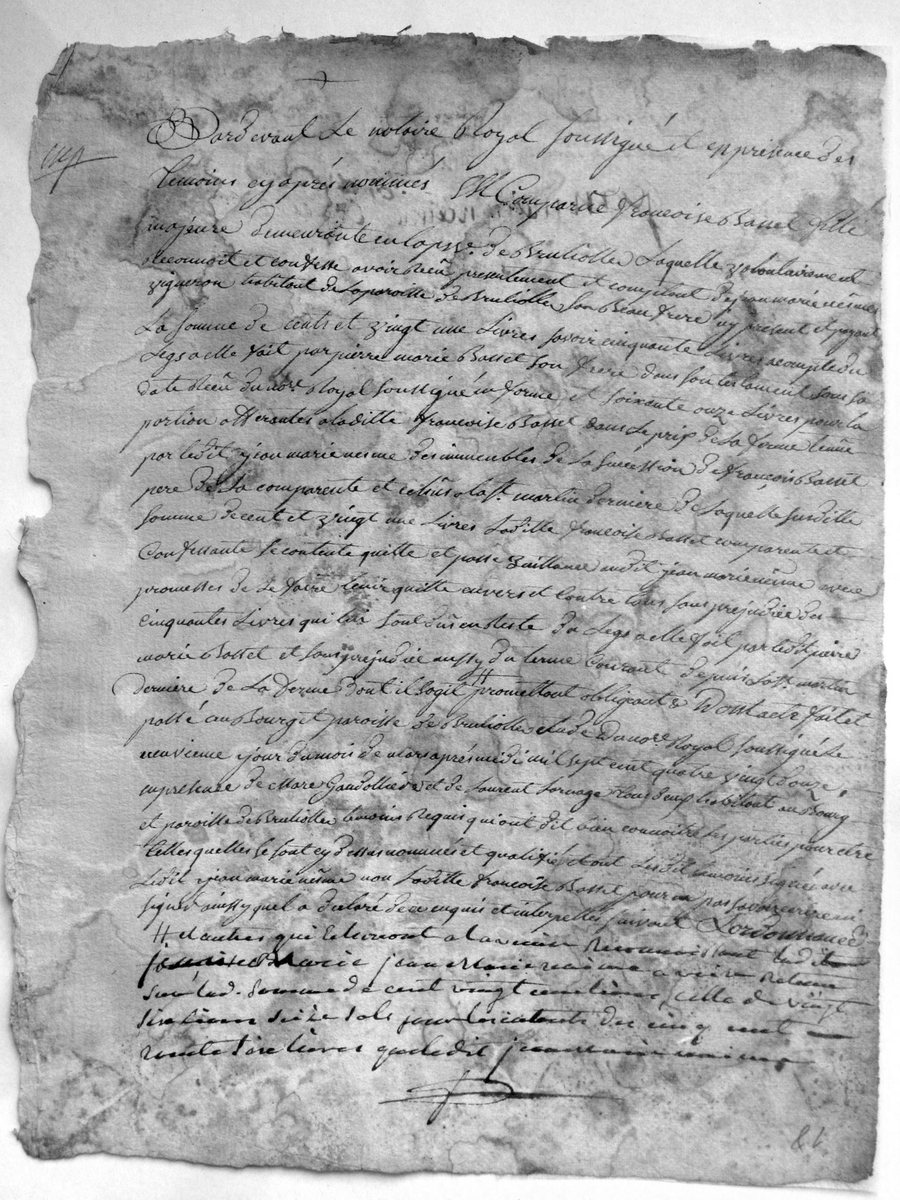 Pardevant Le notaire Royal soussigné et en presence des
temoins cy après nommés Est Comparüe francoise Basset fille
majeure demeurante en la parsse. de Brulliolle Laquelle volontairement
Reconnoit et confesse avoir Recü presentement et comptant de jean marie nesme
vigneron habitant de La paroisse de Brulliolle son Beau frere icy present et payant
La somme de cents et vingt une Livres savoir cinquante Livres acompte du
Legs a elle fait par pierre marie Basset son frere dans son testament sous sa
date Recü du nore. Royal soussigné en forme et soixante onze Livres pour la
portion afferantes a laditte francoise Basset dans Le prix de La ferme tenüe
par ledit jean marie nesme des immeubles de La succession de francois Basset
pere de La comparente et échüs a la st. martin derniere de Laquelle susditte
somme de cent et vingt une Livres Laditte francoise Basset comparente et
Confessante se contente quitte et passe quittance audit jean marie nesme avec
promesses de Le faire tenir quitte envers et contre tous sans prejudice des
cinquantes Livres qui lui sont dües en Reste du Legs a elle fait par ledit pierre
marie Basset et sans prejudice aussy du terme Courant depuis la st. martin
derniere de La ferme dont il sagit # promettant obligeant & Dont acte fait et
passé au Bourg et paroisse de Brulliolle etude du nore. Royal soussigné Le
neuvieme jour du mois de mars après midi mil sept cent quatre vingt douze,
en presence de Marc Gaudollier et de Laurent Lornage tous deux habitant au Bourg
et paroisse de Brulliolle temoins Requis qui ont dit bien connoitre Les parties pour etre
telles quelles se sont cy dessus nommés et qualifié et ont Lesdit temoins signé avec
Ledit jean marie nesme non Laditte francoise Basset pour ne pas savoir ecrire ni
signer ainsy quel a declaré de ce enquis et interpellés suivant Lordonnance
# et autres qui a lavenir Reconnoissant Ledit
jean Marie nesme avoir Retenu
sur Lad. somme de cent vingt une livres celle de vingt
livres seize sols pour des cinq cent
livres que ledit jean marie nesme
81